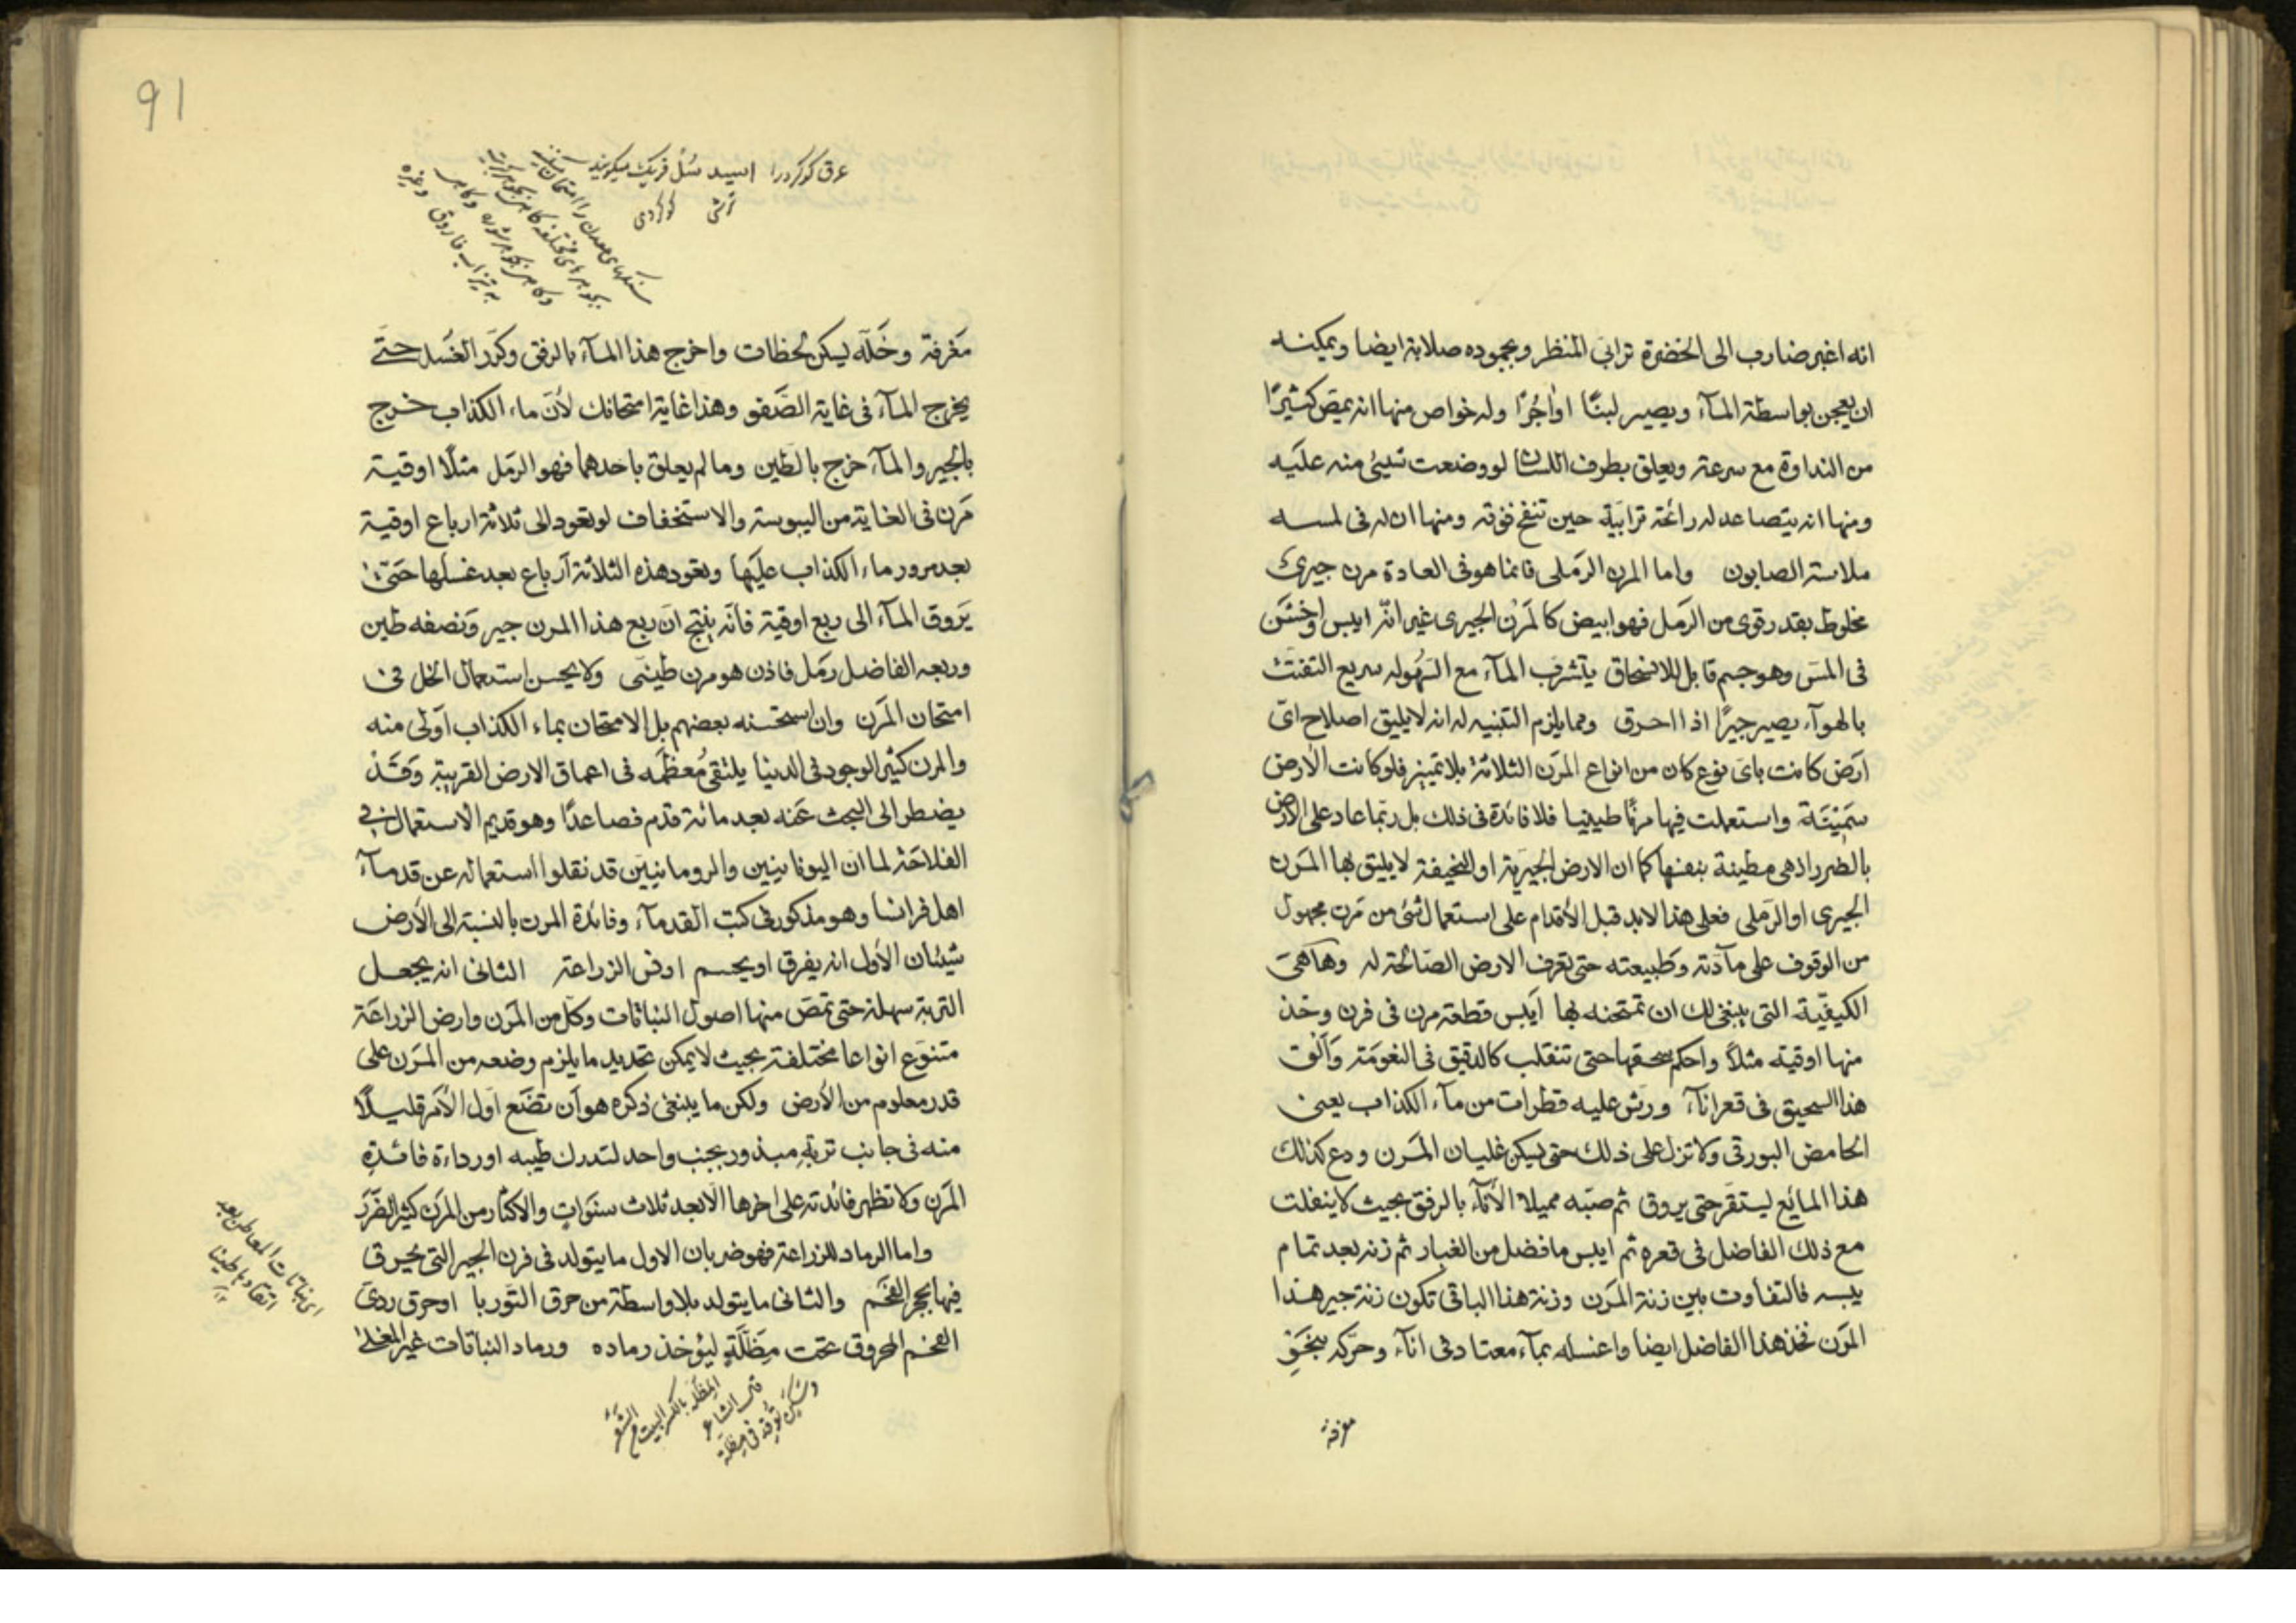 انه اغبر ضارب الى الخضرة ترابى المنظر وبجموده صلابة ايضا ويمكنه
ان يعجن بواسطة المآء ويصير لبنًا اواجُرًا وله خواص منها انه يمتص كثيرًا
من النداوة مع سرعته ويعلق بطرف اللسان لو وضعت شيئ منه عليه
ومنها انه يتصاعد له رائحة ترابية حين تنفخ فوقه ومنها ان له فى لمسه
ملاسة الصابون واما المرن الرملى فانما هو فى العادة مرن جيرى
مخلوط بقدر قوى من الرمل فهو ابيض كالمرن الجيرى غير انه ايبس واخشن
فى المس وهو جسم قابل للانسحاق يتشرب المآء مع السهوله سريع التفتت
بالهوآء يصير جيرًا اذا احرق ومما يلزم التنبيه له انه لا يليق اصلاح اىّ
ارض كانت باى نوع كان من انواع المرن الثلاثة بلا تمييز فلو كانت الارض
سمينة واستعملت فيها مرنًا طينيا فلا فائدة فى ذلك بل ربما عاد على الارض
بالضرر اذ هى مطينة بنفسها كما ان الارض الجيرية او النحيفة لا يليق بها المرن
الجيرى او الرملى فعلى هذا لا بد قبل الأقدام على استعمال شئ من مرن مجهول
من الوقوف على مآدته وطبيعته حتى تعرف الارض الصالحة له وها هى
الكيفية التى ينبغى لك ان تمتحنه بها ايبس قطعة مرن فى فرن وخذ
منها اوقيته مثلاً واحكم سحقها حتى تنقلب كالدقيق فى النعومة وآلق
هذا السحيق فى قعر انآء ورش عليه قطرات من مآء الكذاب يعنى
الحامض البورقى ولا تزل على ذلك حتى يسكن غليان المرن ودع كذلك
هذا المايع ليستقر حتى يروق ثم صبه مميلا الأنآء بالرفق بحيث لا ينفلت
مع ذلك الفاضل فى قعره ثم ايبس ما فضل من الغبار ثم زنه بعد تمام
يبسه فالتفاوت بين زنة المرن وزنة هذا الباقى تكون زنة جير هذا
المرن فخذ هذا الفاضل ايضا واغسله بمآء معتاد فى انآء وحركه بنحو
مغرفة
91
عرق كوكرد را اسيد سُلْفريك ميكويند
ترشى كوكردى
سنكهاى معدن را امتحان
وكاهى بجوهر شوره وكاهى
به تيزاب فاروق وغيره
مغرفة وخلّه ليسكن لحظات واخرج هذا المآء بالرفق وكرر الغسل حتى
يخرج المآء فى غاية الصفو وهذا غاية امتحانك لأن ماء الكذاب خرج
بالجير والمآء خرج بالطين وما لم يعلق باحدهما فهو الرمل مثلًا اوقية
مرن فى الغاية من اليبوسة والاستخفاف لو تعود الى ثلاثة ارباع اوقية
بعد مرور ماء الكذاب عليها وتعود هذه الثلاثة آرباع بعد غسلها حتى
يروق المآء الى ربع اوقية فانه ينتج ان ربع هذا المرن جير ونصفه طين
وربعه الفاضل رمل فاذن هو مرن طينى ولا يحسن استعمال الخل فى
امتحان المرن وان استحسنه بعضهم بل الامتحان بماء الكذاب اولى منه
والمرن كثير الوجود فى الدنيا يلتقى مُعظمه فى اعماق الارض القريبة وقد
يضطر الى البحث عنه بعد مائة قدم فصاعدًا وهو قديم الاستعمال فى
الفلاحة لما ان اليونانيين والرومانيين قد نقلوا استعماله عن قدمآء
اهل فرانسا وهو مذكور فى كتب القدمآء وفائدة المرن بالنسبة الى الأرض
شيئان الأول انه يفرق او يجسم ارض الزراعة الثانى انه يجعل
التربة سهلة حتى تمتص منها اصول النباتات وكل من المرن وارض الزراعة
متنوع انواعا مختلفة بحيث لا يمكن تحديد ما يلزم وضعه من المرن على
قدر معلوم من الأرض ولكن ما ينبغى ذكره هو ان تضع اول الأمر قليلًا
منه فى جانب تربةٍ مبذور بجنب واحد لتدرك طيبه او رداءة فائدةِ
المرن ولا تظهر فائدته على اخرها الا بعد ثلاث سنوات والاكثار من المرن كثير الضرر
واما الرماد للزراعة فهو ضربان الاول ما يتولد فى فرن الجير التى يحرق
فيها بحجر الفحم والثانى ما يتولد بلا واسطة من حرق التوربا او حرق ردى
الفحم المحروق تحت مِظلّةٍ ليؤخذ رماده ورماد النباتات غير المغلى
اى نباتات المعاطن بعد
المظلة بالكسر البيت من الشَّعَر
قال الشاعر